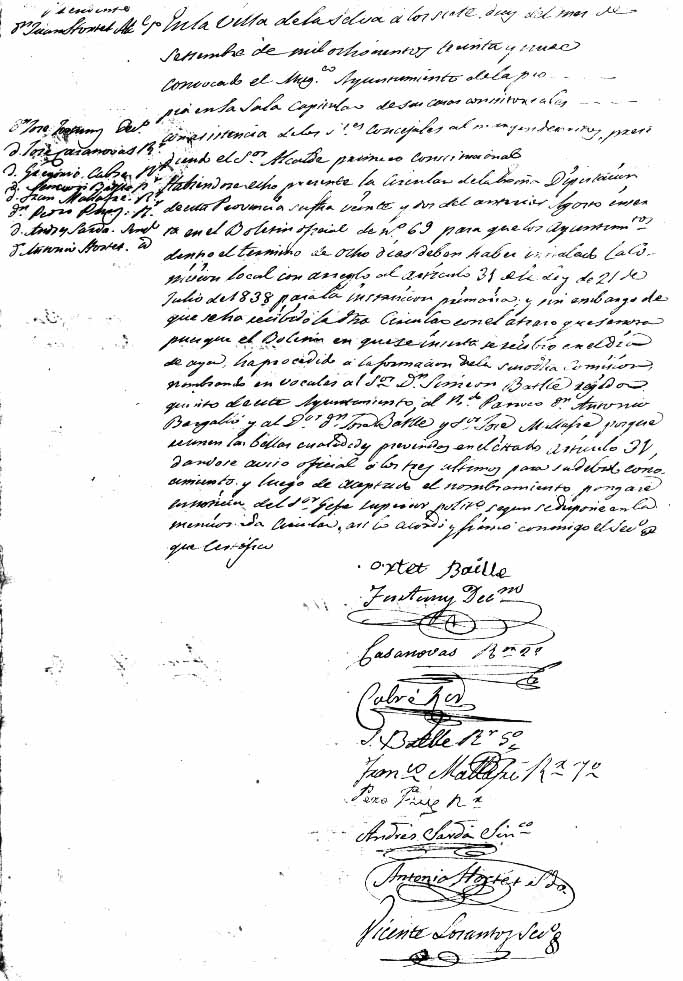 Presidente
Dn Juan Hortet Ale 1º
Dn José Fortuny Decº
D. José Casanovas Rr
D. Gregorio Cabré Rr
D. Simeon Batlle Rr
D. Juan Mallafré Rr
Dn Pedro Puig Rr
D. Andres Sardá Sindº
Dn Antonio Hortet id
En la Villa de la Selva a los siete dias del mes de
Setiembre de mil ochocientos treinta y nueve
convocado el Magco Ayuntamiento de la pro
pia en la Sala Capitular de sus casas consistoriales
con asistencia de los Sres Concejales al margen descritos, presi
diendo el Sor Alcalde primero constitucional
Habiendose echo presente la Circular de la Exma Diputacion
de esta Provincia su fha veinte y dos del anterior Agosto inser
ta en el Boletin oficial de nº 69 para que los Ayuntamtos
dentro el termino de ocho dias deben haber instalado la Co
mision local con arreglo al articulo 31 de la Ley de 21 de
Julio de 1838 para la instruccion primaria, y sin embargo de
que se ha recibido la dha Circular con el atraso
pues que el Boletin en que se inserta se recibió en el dia
de ayer, ha procedido a la formacion de la susodha Comision,
nombrando en vocales al Sor Dn Simeon Batlle regidor
quinto de este Ayuntamiento al Rdo Parroco Dn Antonio
Bargalló y al Dor Dn José Batlle y Sor José Mallafré porque
reunen las bellas cualidades prevenidas en el citado articulo 31,
dandose aviso oficial a los tres ultimos para su devido cono
cimiento, y luego de aceptado el nombramiento pongase
en noticia del Sor Gefe superior politco segun se dispone en la
mencionada Circular, asi lo acordó y firmó conmigo el Secro
que Certifico
Ortet Batlle
Fortuny Decno
Casanovas Ror 2º
Cabré Ror
S. Batlle Rr 5º
Franco Mallafré Rr 7º
Pero Puig Rr
Andres Sardá Sinco
Antonio Hortet Sdo
Vicente Lorantos Secro